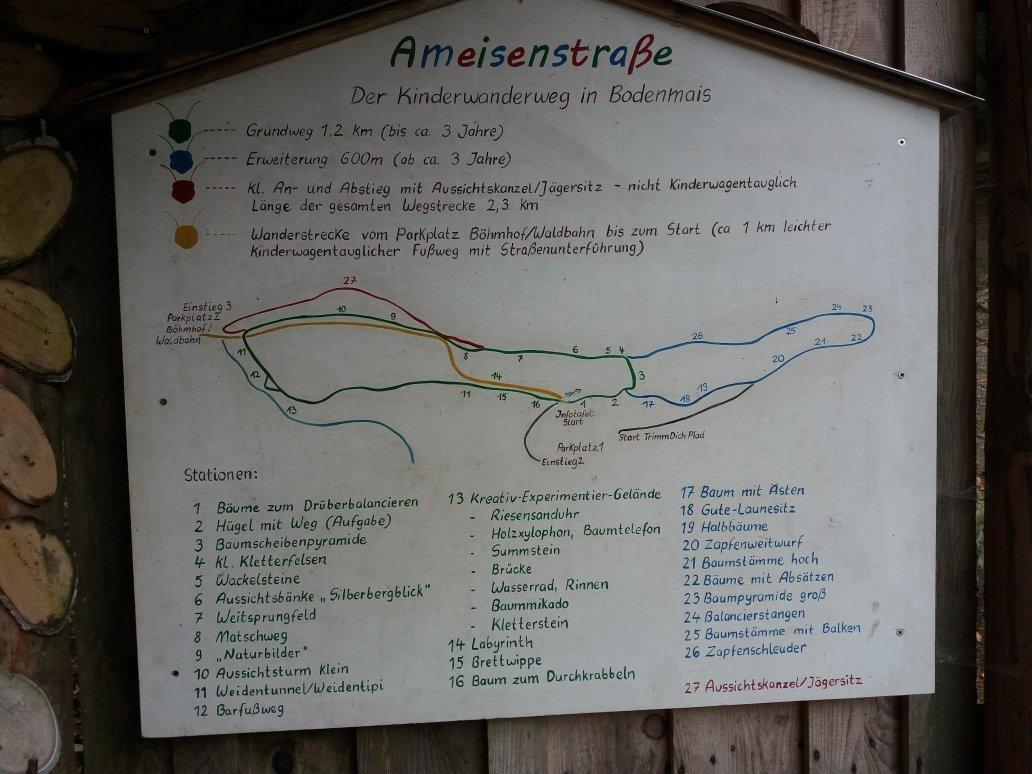 Ameisenstraße
Der Kinderwanderweg in Bodenmais
Grundweg 1,2 km (bis ca. 3 Jahre)
Erweiterung 600m (ab ca. 3 Jahre)
Kl. An- und Abstieg mit Aussichtskanzel/Jägersitz - nicht Kinderwagentauglich
Länge der gesamten Wegstrecke 2,3 km
Wanderstrecke vom Parkplatz Böhmhof/Waldbahn bis zum Start (ca 1 km leichter
Kinderwagentauglicher Fußweg mit Straßenunterführung)
27
Einstieg 3
Parkplatz I
Böhmhof/
Waldbahn
10
9
8
7
6
5
4
26
25
24
23
22
21
20
19
18
17
3
11
12
13
14
11
15
16
1
2
Infotafel
Start
Parkplatz 1
Einstieg 2
Start TrimmDich Pfad
Stationen:
1 Bäume zum Drüberbalancieren
2 Hügel mit Weg (Aufgabe)
3 Baumscheibenpyramide
4 Kl. Kletterfelsen
5 Wackelsteine
6 Aussichtsbänke „Silberbergblick"
7 Weitsprungfeld
8 Matschweg
9 „Naturbilder"
10 Aussichtsturm klein
11 Weidentunnel/Weidentipi
12 Barfußweg
13 Kreativ-Experimentier-Gelände
- Riesensanduhr
- Holzxylophon, Baumtelefon
- Summstein
- Brücke
- Wasserrad, Rinnen
- Baummikado
- Kletterstein
14 Labyrinth
15 Brettwippe
16 Baum zum Durchkrabbeln
17 Baum mit Ästen
18 Gute-Launesitz
19 Halbbäume
20 Zapfenweitwurf
21 Baumstämme hoch
22 Bäume mit Absätzen
23 Baumpyramide groß
24 Balancierstangen
25 Baumstämme mit Balken
26 Zapfenschleuder
27 Aussichtskanzel/Jägersitz